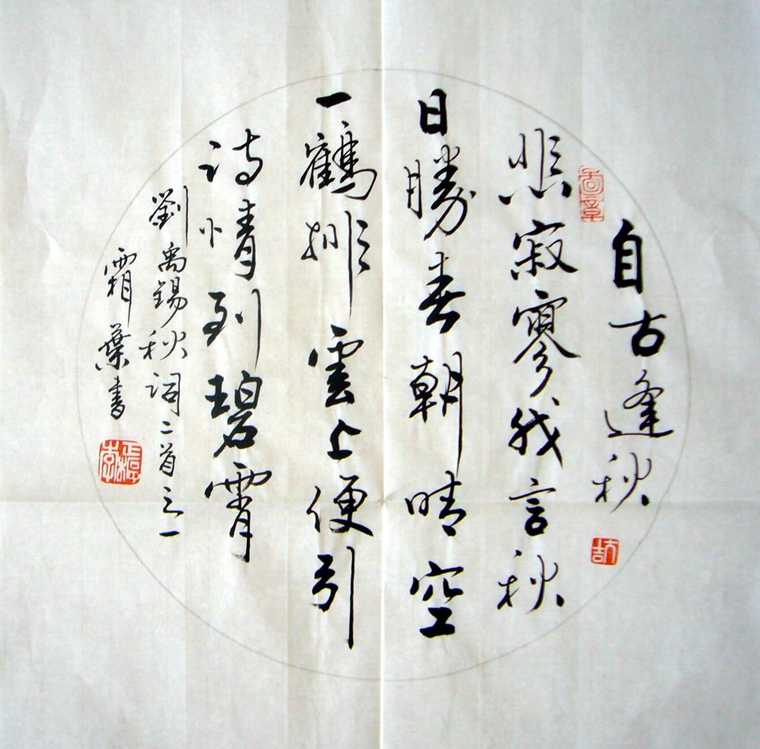 自古逢秋
悲寂寥我言秋
日勝春朝晴空
一鶴排雲上便引
诗情到碧霄
劉禹錫秋詞二首之一
霜葉書